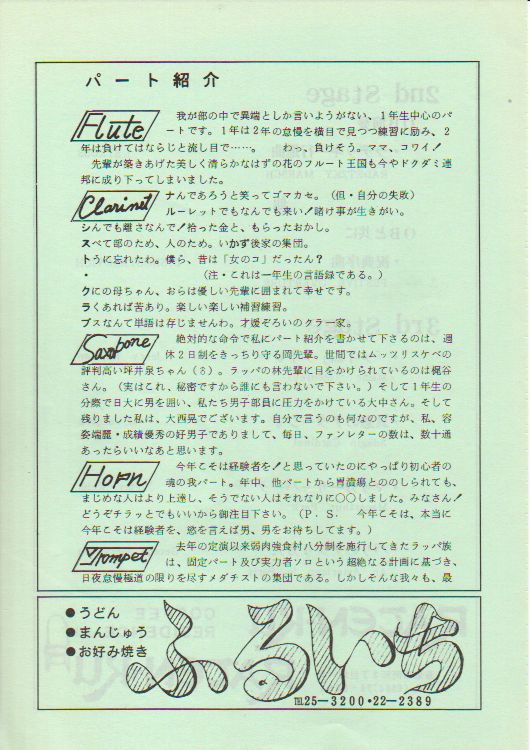 パート紹介
Flute
我が部の中で異端としか言いようがない、1年生中心のパ
ートです。1年は2年の怠慢を横目で見つつ練習に励み、2
年は負けてはならじと流し目で……。 わっ、負けそう。ママ、コワイ!
先輩が築きあげた美しく清らかなはずの花のフルート王国も今やドクダミ連
邦に成り下ってしまいました。
Clarinet
ナんであろうと笑ってゴマカセ。(但・自分の失敗)
ルーレットでもなんでも来い!賭け事が生きがい。
シんでも離さなんで!拾った金と、もらったおかし。
スべて部のため、人のため。いかず後家の集団。
トうに忘れたわ。僕ら、昔は「女のコ」だったん?
・ (注・これは一年生の言語録である。)
クにの母ちゃん、おらは優しい先輩に囲まれて幸せです。
ラくあれば苦あり。楽しい楽しい補習練習。
ブスなんて単語は存じませんわ。才媛ぞろいのクラ一家。
Saxophone
絶対的な命令で私にパート紹介を書かせて下さるのは、週
休2日制をきっちり守る岡先輩。世間ではムッツリスケベの
評判高い坪井泉ちゃん(8)。ラッパの林先輩に目をかけられているのは梶谷
さん。(実はこれ、秘密ですから誰にも言わないで下さい。)そして1年生の
分際で日大に男を囲い、私たち男子部員に圧力をかけている大中さん。そして
残りました私は、大西晃でございます。自分で言うのも何なのですが、私、容
姿端麗・成績優秀の好男子でありまして、毎日、ファンレターの数は、数十通
あったらいいなあと思います。
Horn
今年こそは経験者を!と思っていたのにやっぱり初心者の
魂の我パート。年中、他パートから胃潰瘍とののしられても、
まじめな人はより上達し、そうでない人はそれなりに○○しました。みなさん!
どうぞチラッとでもいいから御注目下さい。(P.S. 今年こそは、本当に
今年こそは経験者を、慾を言えば男、男をお待ちしてます。)
Trompet
去年の定演以来弱肉強食村八分制を施行してきたラッパ族
は、固定パート及び実力者ソロという超絶なる計画に基づき、
日夜怠慢極道の限りを尽すメダチストの集団である。しかしそんな我々も、最
●うどん
●まんじゅう
●お好み焼き
ふるいち
℡25-3200・22-2389